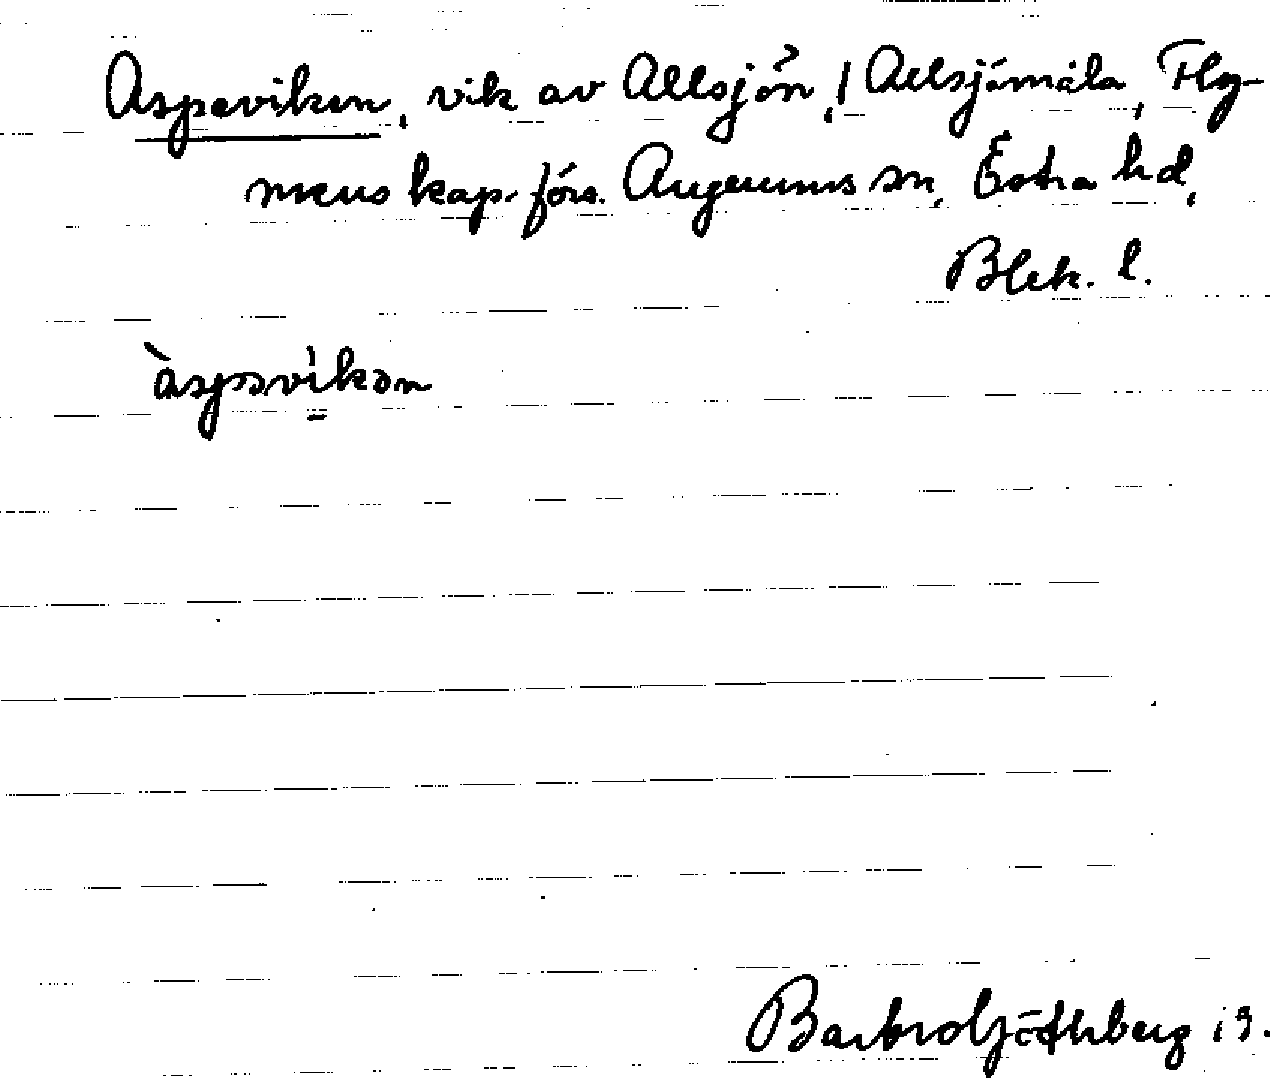 Aspeviken, vik av Allsjön, Allsjömåla, Fly-
mens kap. förs. Augerums sn, Östra hd,
Blek. l.
àspəvikən
Barbro Göthberg 19.